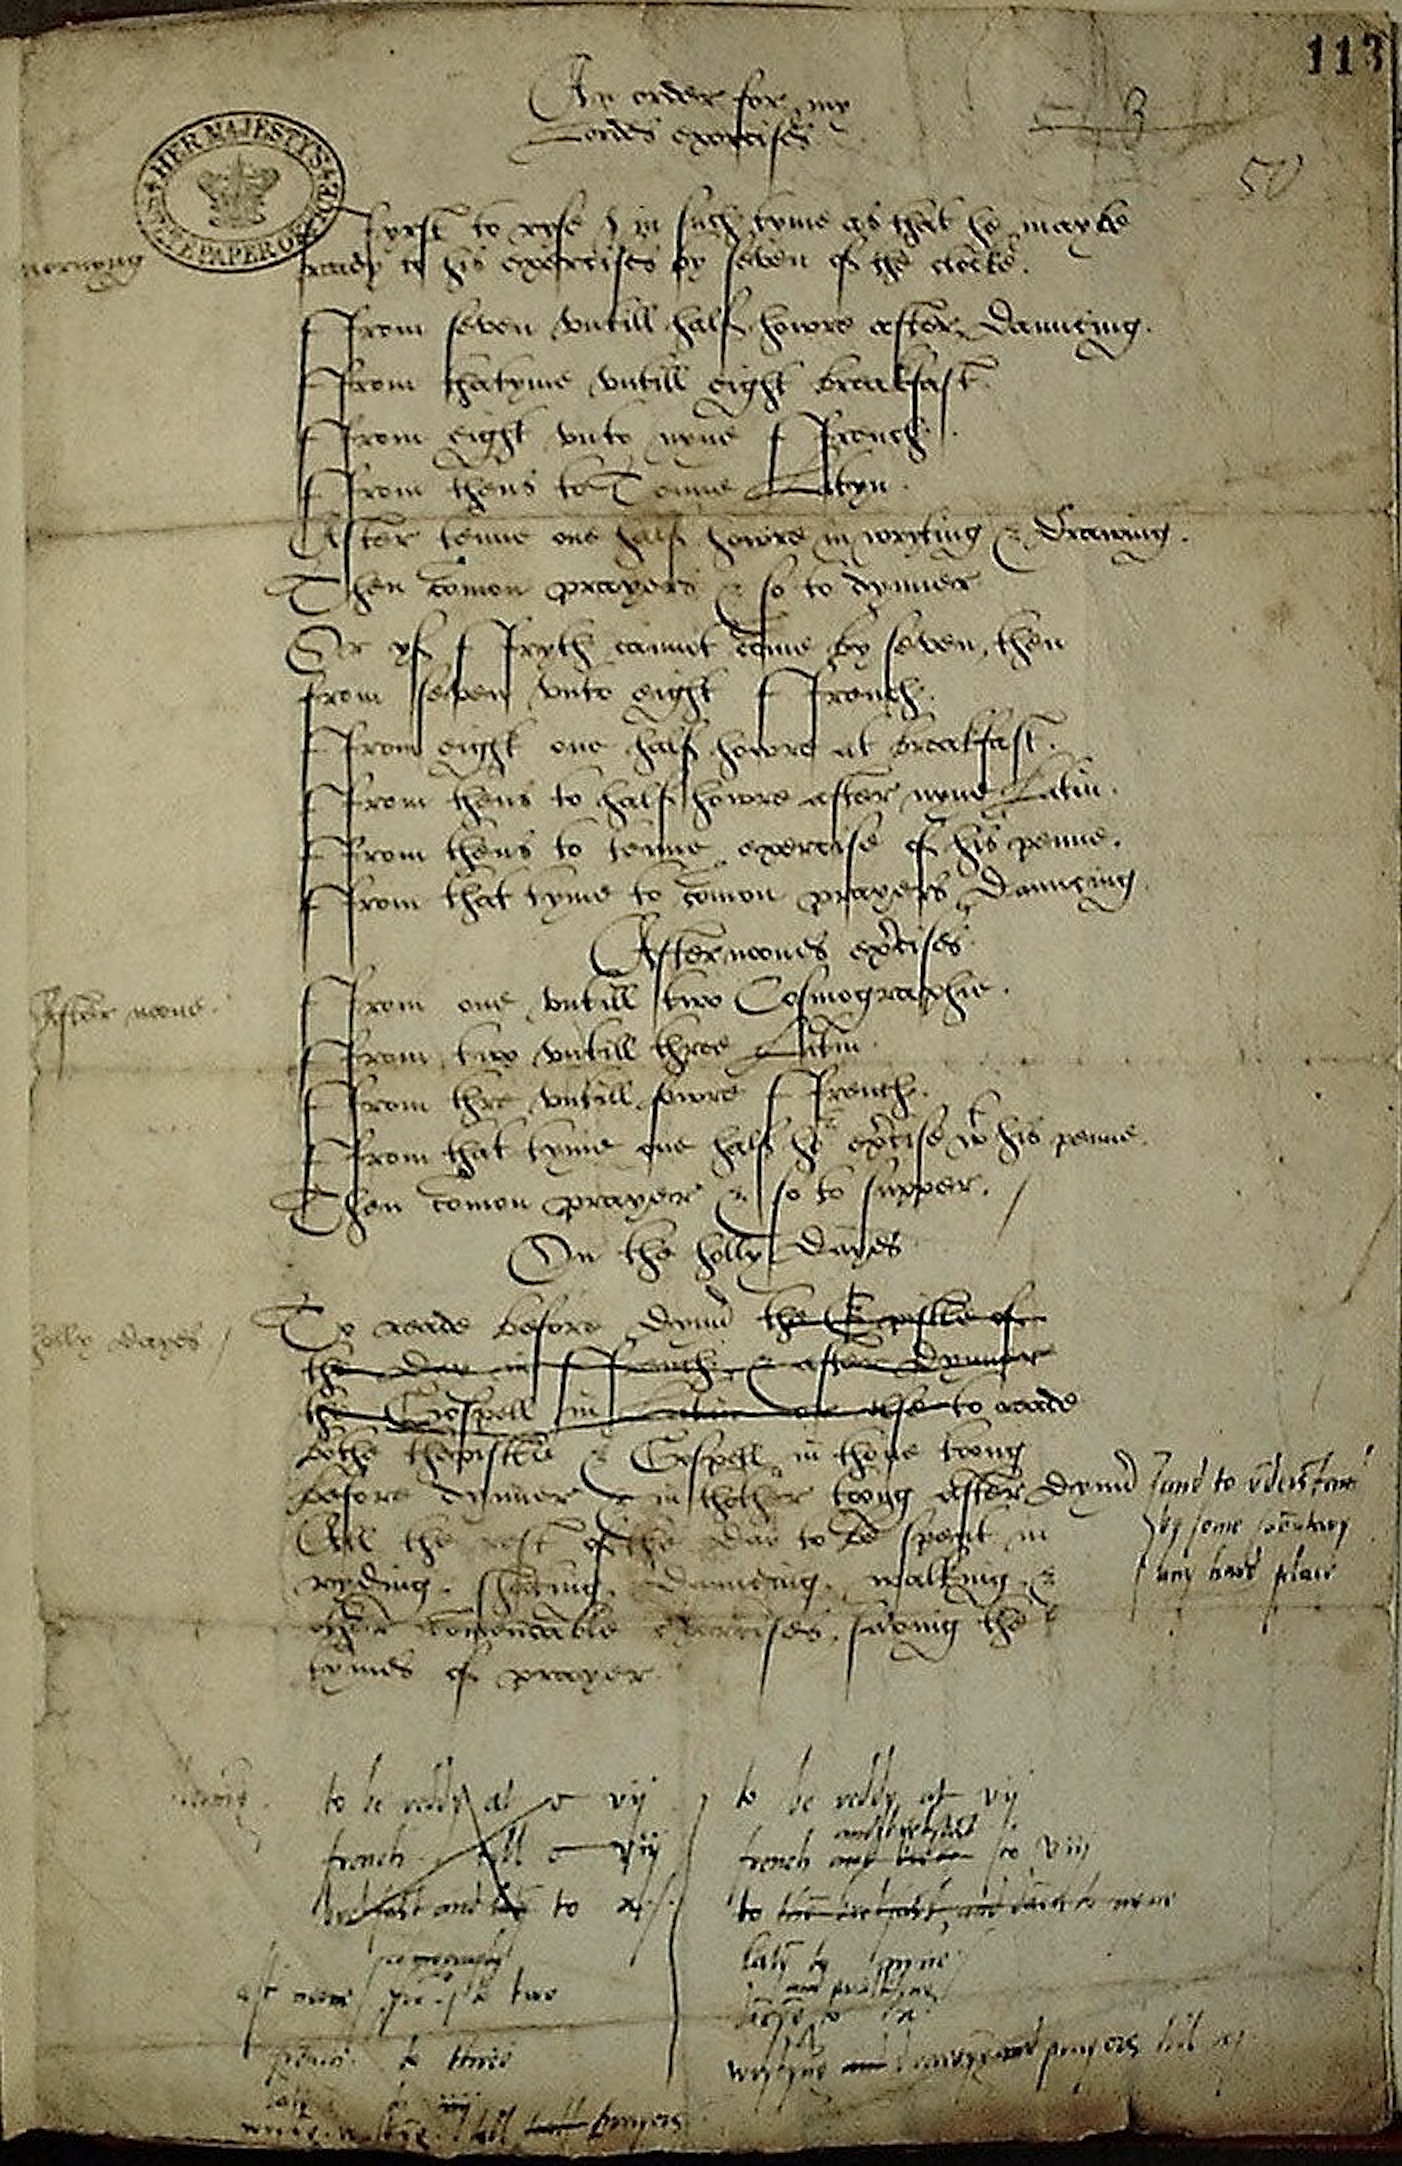 113
An order for my
Lordes exercises
50
HER MAJESTY'S STATE PAPER OFFICE
ffyrst to ryse in such tyme as that he may be
mornyng
ready to his exercises by seven of the clocke.
ffrom seven vntill half howre after Dauncing.
ffrom thatyme vntill eight breakfast.
ffrom eight vnto nyne ffrench.
ffrom thens to Tenne Latyn.
After tenne one half howre in wryting & Drawing.
Then comon prayers & so to dynner
Or yf ffryth cannot come by seven, then
from seven vnto eight ffrench.
ffrom eight one half howre at breakfast.
ffrom thens to half howre after nyne Latin.
ffrom thens to tenne exercise of his penne.
ffrom that tyme to comon prayers Dauncing.
Afternoones exercises
After noone.
ffrom one vntill two Cosmographie.
ffrom two vntill three Latin
ffrom thre vntill fowre ffrench.
ffrom that tyme one half hr exercise wt his penne.
Then comon prayer & so to supper.
On the holly Dayes
holly dayes
To reade before Dynnr the Epistle of
the Day in ffrench, & after Dynner
the Gospell in Latin or else to reade
bothe thepistle & Gospell in thone toong
before dynner & in thother toong after Dynnr
and to
by some
any hard place
All the rest of the day to be spent in
ryding, shooting, Dauncing, walking, &
other comendable exercises, saving the
tymes of prayer
to be reddy at vij
french till vij
brekfast and to
to two
to three
to iiij
till prayers
to be reddy at vij
and brekfast
french to viij
to nyne
and prayers till xj